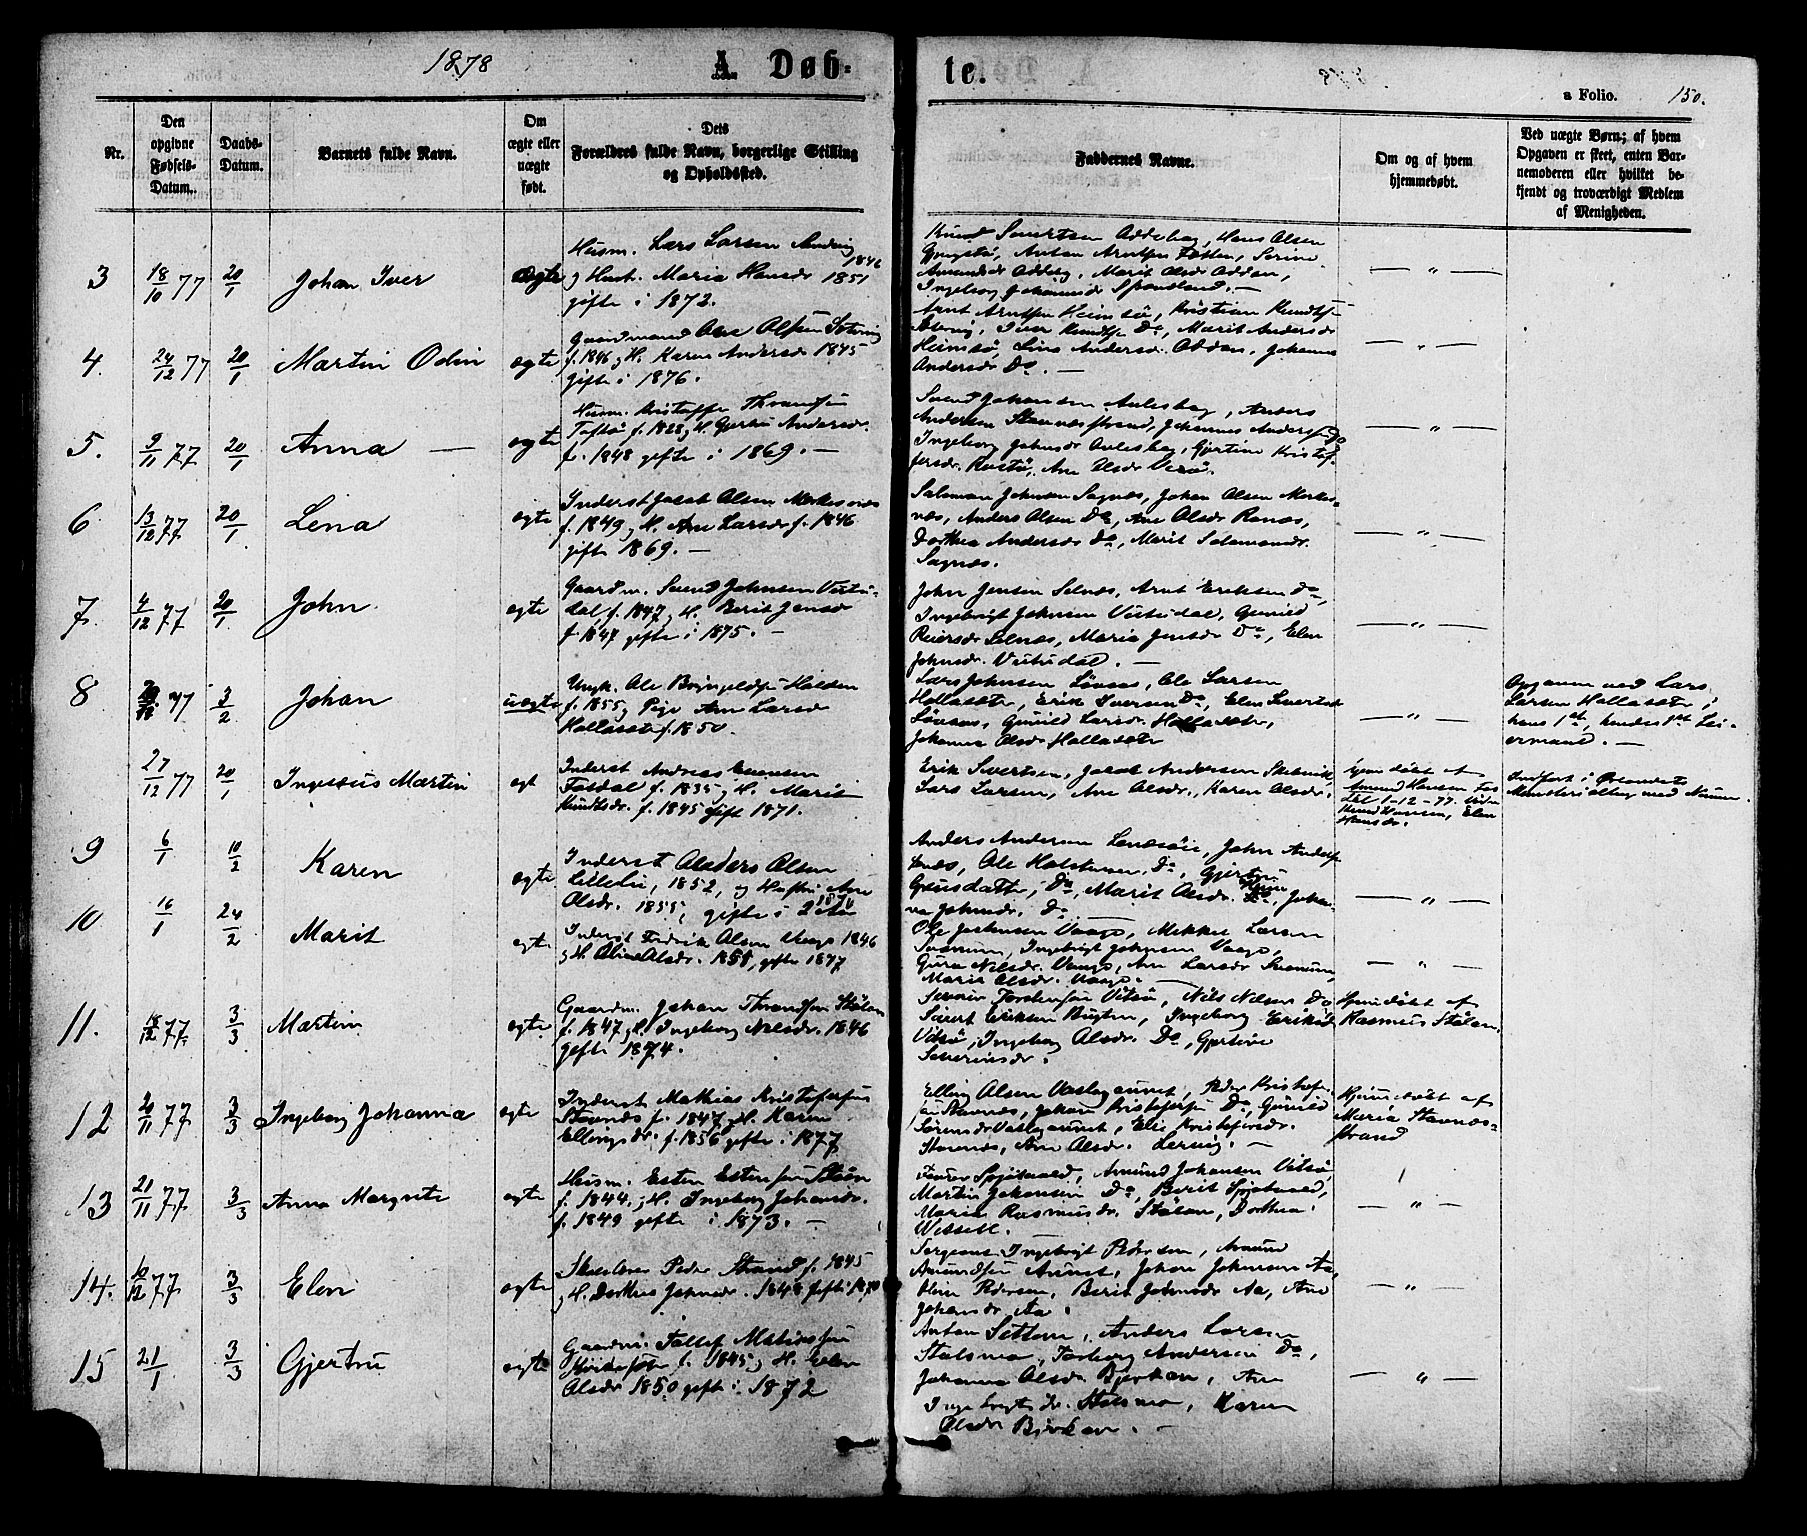 1878 A. Døb-te.
a Folio. 150.
Nr.
Den opgivne Fødsels-Datum.
Daabs-Datum.
Barnets fulde Navn.
Om ægte eller uægte født.
Dets Forældres fulde Navn, borgerlige Stilling og Opholdssted.
Faddernes Navne.
Om og af hvem hjemmedøbt.
Ved uægte Børn; af hvem Opgaven er skeet, enten Barnemoderen eller hvilket bekjendt og troværdigt Medlem af Menigheden.
3 18/10 77 20/1 Johan Iver ægte
Husm. Lars Larsen 1846
og Hust. Maria Hansdr 1851
gifte i 1872.
Knud Sivertsen Oddeby, Hans Olsen
Anton Arntsen Sirine
Amundsdr Marit Olsdr Oddan,
Ingeborg Johannsdr. —
— " —
4. 24/12 77 20/1 Martin Odin ægte
Gaardmand Ane Olsen
f. 1846 og H. Karen Andersdr 1845
gifte i 1876.
Arnt Arntsen Heimsø, Kristian Knudtsen
Iver Knudtsen Do, Marit Andersdr
Heimsø, Lina Andersdr. Oddan, Johanna
Andersdr Do. —
— " —
5. 9/11 77 20/1 Anna — ægte
Husm. Kristoffer Throndsen
Toftø f. 1828 og H. Gjertru Andersdr.
f. 1848 gifte i 1869. —
Svend Johansen Aulesbag, Anders
Andersen Stavnæsstrand, Johannes Andersen Do
Ingeborg Johnsdr Aulesbag, Gjertine Kristof-
fersdr. Ane Olsdr
— " —
6 13/12 77 20/1 Lena ægte
Inderst Jacob Olsen Merkesnæs
f. 1849 og H. Ane Larsdr f. 1846
gifte 1869. —
Salamon Johnsen Sagnæs, Johan Olsen Merkes-
næs, Anders Olsen Do, Ane Olsdr Ranæs,
Dorthea Andersdr Do, Marit Salamonsdr.
Sagnæs.
— " —
7. 4/12 77 20/1 John. ægte
Gaardm. Svend Johnsen Vistu-
dal f. 1847 og H. Berit Jensdr
f. 1847 gifte i 1875. —
John Jensen Selnæs, Arnt Eriksen Do,
Ingebrigt Johnsen Vistudal, Gunild
Reiersdr Selnæs, Maria Jensdr Do, Elen
Johnsdr. Vistudal. —
— " —
8 77 3/2 Johan uægte
Ungk. Ole Halden
f. 1855, Pige Ane Larsdr
Hollasæter f. 1850.
Lars Johnsen Løvaas, Ole Larsen
Hollasæter, Erik Iversen Do, Elen Sivertsdr
Løvaas, Gunild Larsdr. Hollasæter,
Johanna Olsdr Hollasæter
— " —
Opgaven ved Lars
Larsen Hollasæter;
hans 1st, hendes 1st Lei-
ermaal. —
27/12 77 20/1 Ingesæus Martin egt
Inderst Andreas
Fosdal f. 1835 og H. Marit
Knudtsdr. f. 1845 gift 1871.
Erik Sivertsen, Jacob Andersen
Lars Larsen, Ane Olsdr., Karen Olsdr.
Hjemdøbt af
Amund Hansen Fos-
dal 1-12-77. Vidn
Knud Hansen, Elen
Hansdr.
Indført i Ørlandets
Ministerialbog med Numer
9 6/1 10/2 Karen ægte
Inderst Anders Olsen
1852, og Hustru Ane
Olsdr. 1855, gifte i
Anders Andersen John
Ole Holstensen Do, Gjertru
Do, Marit Olsdr. Johan-
na Johnsdr. Do. —
— " —
10 16/1 24/2 Marit ægte
Inderst Fredrik Olsen Vaage 1846
og H. Olina Olsdr. 1855, gifte 1877
Ole Vaage, Mikkel Larsen
Ingebrigt Johnsen Vaage,
Gura Nilsdr. Vaage, Ane Larsdr
Marit Olsdr. Vaage. —
— " —
11. 18/12 77 3/3 Martin ægte
Gaardm. Johan Throndsen Stølan
f. 1847 og H. Ingeborg Nilsdr. 1846
gifte 1874.
Torstensen Vitsø, Nils Nilsen Do
Sivert Eriksen Bugten, Ingeborg Eriksdr
Vitsø, Ingeborg Olsdr. Do, Gjertine
Severinsdr.
Hjemdøbt af
Rasmus Stølan.
12 20/11 77 3/3 Ingeborg Johanna ægte
Inderst Mathias Kristofersen
Stavnæs f. 1847 og H. Karen
Ellingsdr. f. 1856 gifte i 1877
Elling Olsen Vaslegaunet, Peder Kristof-
ersen Stavnæs, Johan Kristofersen Do, Gunild
Sørensdr Vaslegaunet, Elie Kristofersdr.
Stavnæs, Ane Olsdr. Lervig. —
Hjemdøbt af
Maria Stavnæs-
strand
13 21/11 77 3/3 Anna Margrete ægte
Husm. Esten Estensen Stølan
f. 1844 og H. Ingeborg Johansdr.
f. 1849 gifte i 1873. —
Amund Johansen Vitsø
Martin Johansen Do, Berit
Maria Rasmusdr. Stølan, Dorthea
Wessell. —
— " —
14. 10/12 77 3/3 Elen ægte
Skolelærer Peder Strand f. 1845
og H. Dorthea Johnsdr. 1848 gifte 1870
Sergeant Ingebrigt Pedersen, Amund
Amundsen Aunet, Johan Johnsen Aa,
Pedersen, Berit Johnsdr Aa, Ane
Johansdr. Aa.
— " —
15 21/1 3/3 Gjertru ægte
Gaardm. Tollef Mathiassen
f. 1845 og H. Elen
Olsdr 1850 gifte i 1872
Anton Settem, Anders Larsen
Stolsmo, Andersen Do,
Johanna Olsdr Bjørkan, Ane
Ingebrigtsdr. Stolsmo, Karen
Olsdr Bjørkan. —
— " —